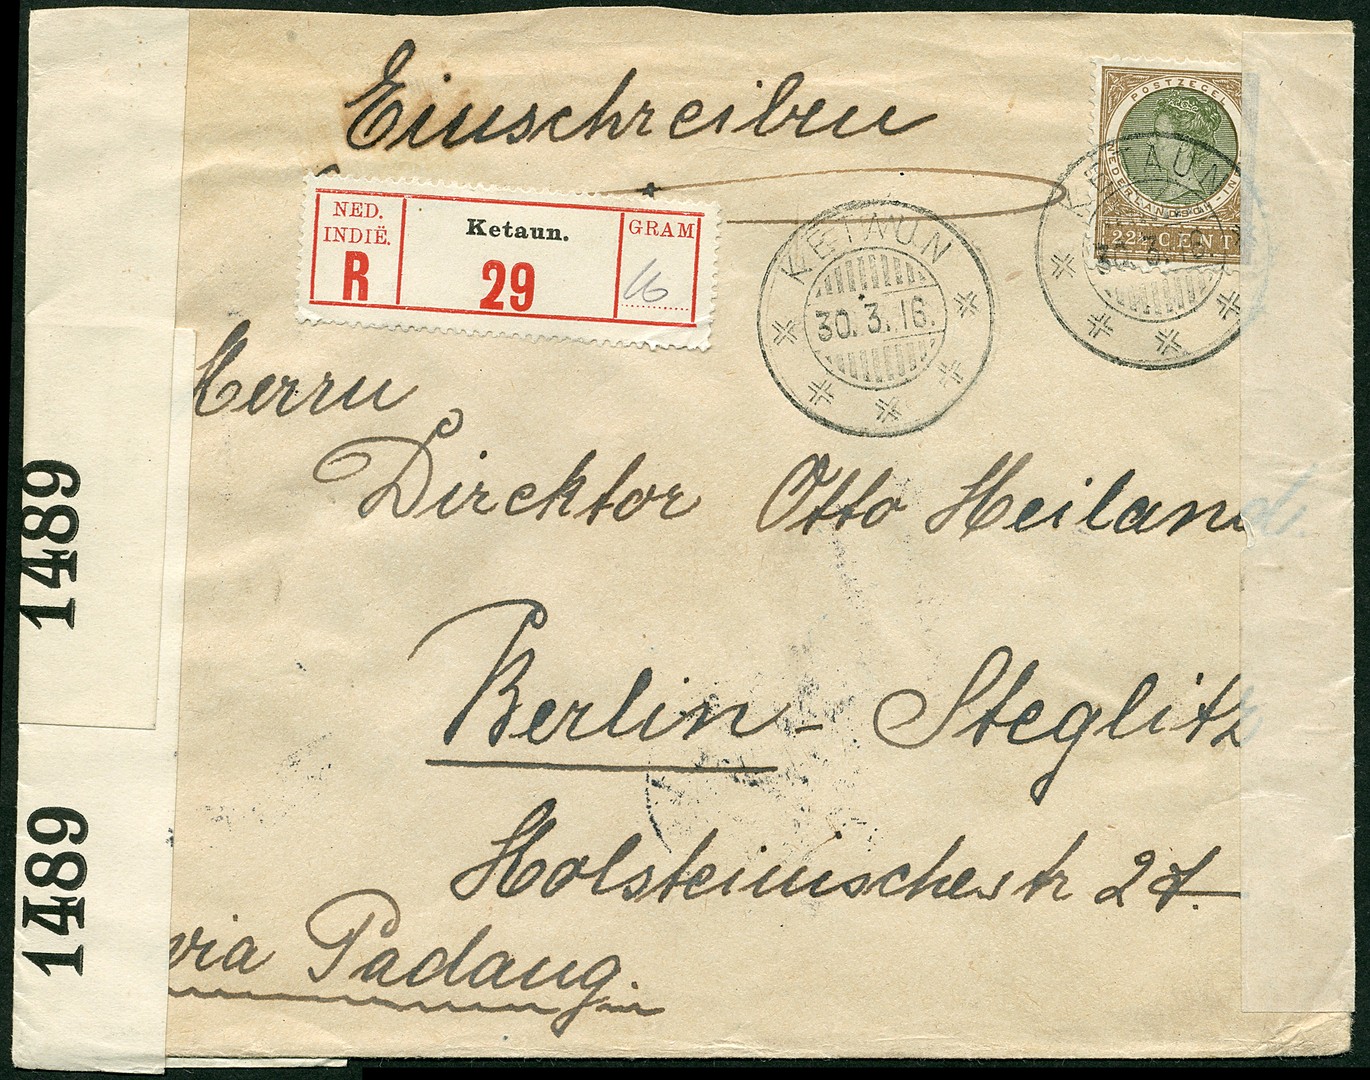 Einschreiben
POSTZEGEL
NEDERLANDSCH-IN
22½ CENT
NED. INDIË.
R
Ketaun.
29
GRAM
16
KETAUN
30.3.16.
KETAUN
30.3.16.
Herrn
Direktor Otto Heiland.
Berlin - Steglitz
Holsteinischestr 27.
via Padang.
1489
1489